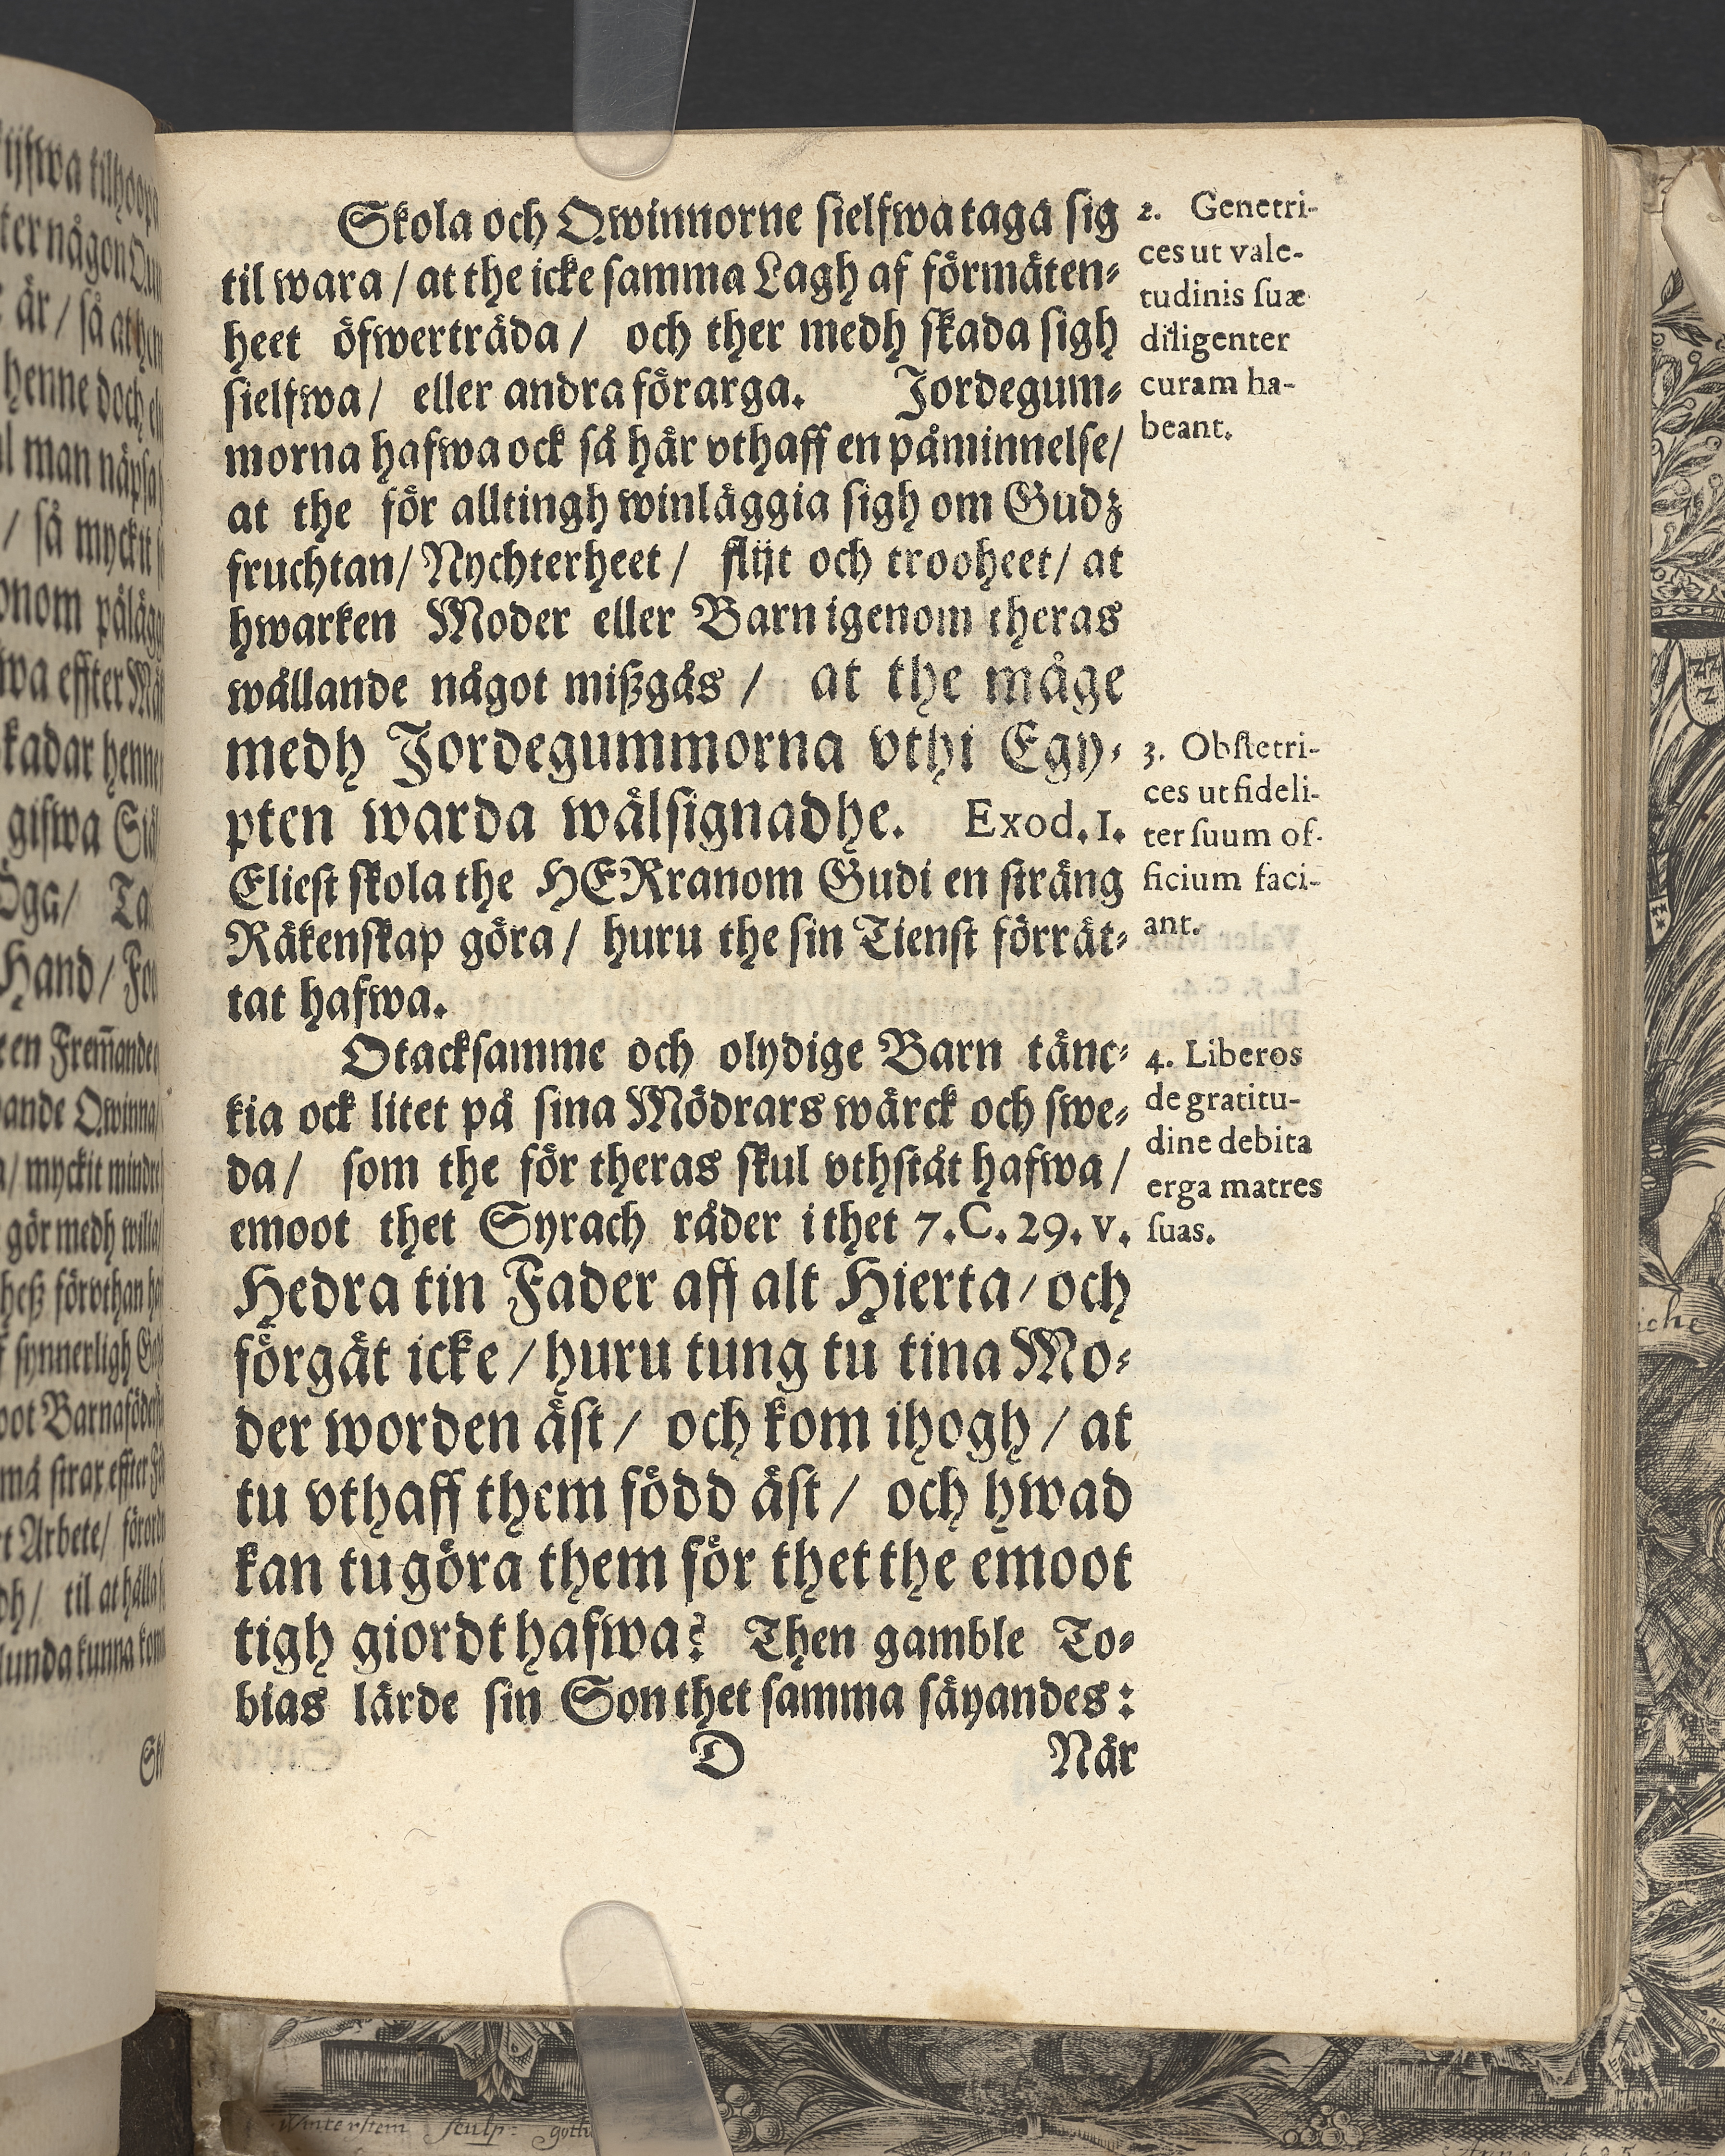 Skola och Qwinnorne sielfwa taga sig
til wara / at the icke samma Lagh af förmäten-
heet öfwerträda / och ther medh skada sigh
sielfwa / eller andra förarga. Jordegum-
morna hafwa ock så här vthaff en påminnelse /
at the för alltingh winläggia sigh om Gudz
fruchtan / Nychterheet / flijt och trooheet / at
hwarken Moder eller Barn igenom theras
wållande något mißgås / at the måge
medh Jordegummorna vthi Egy-
pten warda wälsignadhe. Exod. 1.
Eliest skola the HERranom Gudi en sträng
Räkenskap göra / huru the sin Tienst förrät-
tat hafwa.
Otacksamme och olydige Barn tänc-
kia ock litet på sina Mödrars wärck och swe-
da / som the för theras skul vthstått hafwa /
emoot thet Syrach råder i thet 7. C. 29. v.
Hedra tin Fader aff alt Hierta / och
förgät icke / huru tung tu tina Mo-
der worden äst / och kom ihogh / at
tu vthaff them född äst / och hwad
kan tu göra them för thet the emoot
tigh giordt hafwa? Then gamble To-
bias lärde sin Son thet samma säyandes:
D När
2. Genetri-
ces ut vale-
tudinis suæ
diligenter
curam ha-
beant.
3. Obstetri-
ces ut fideli-
ter suum of-
ficium faci-
ant.
4. Liberos
de gratitu-
dine debita
erga matres
suas.